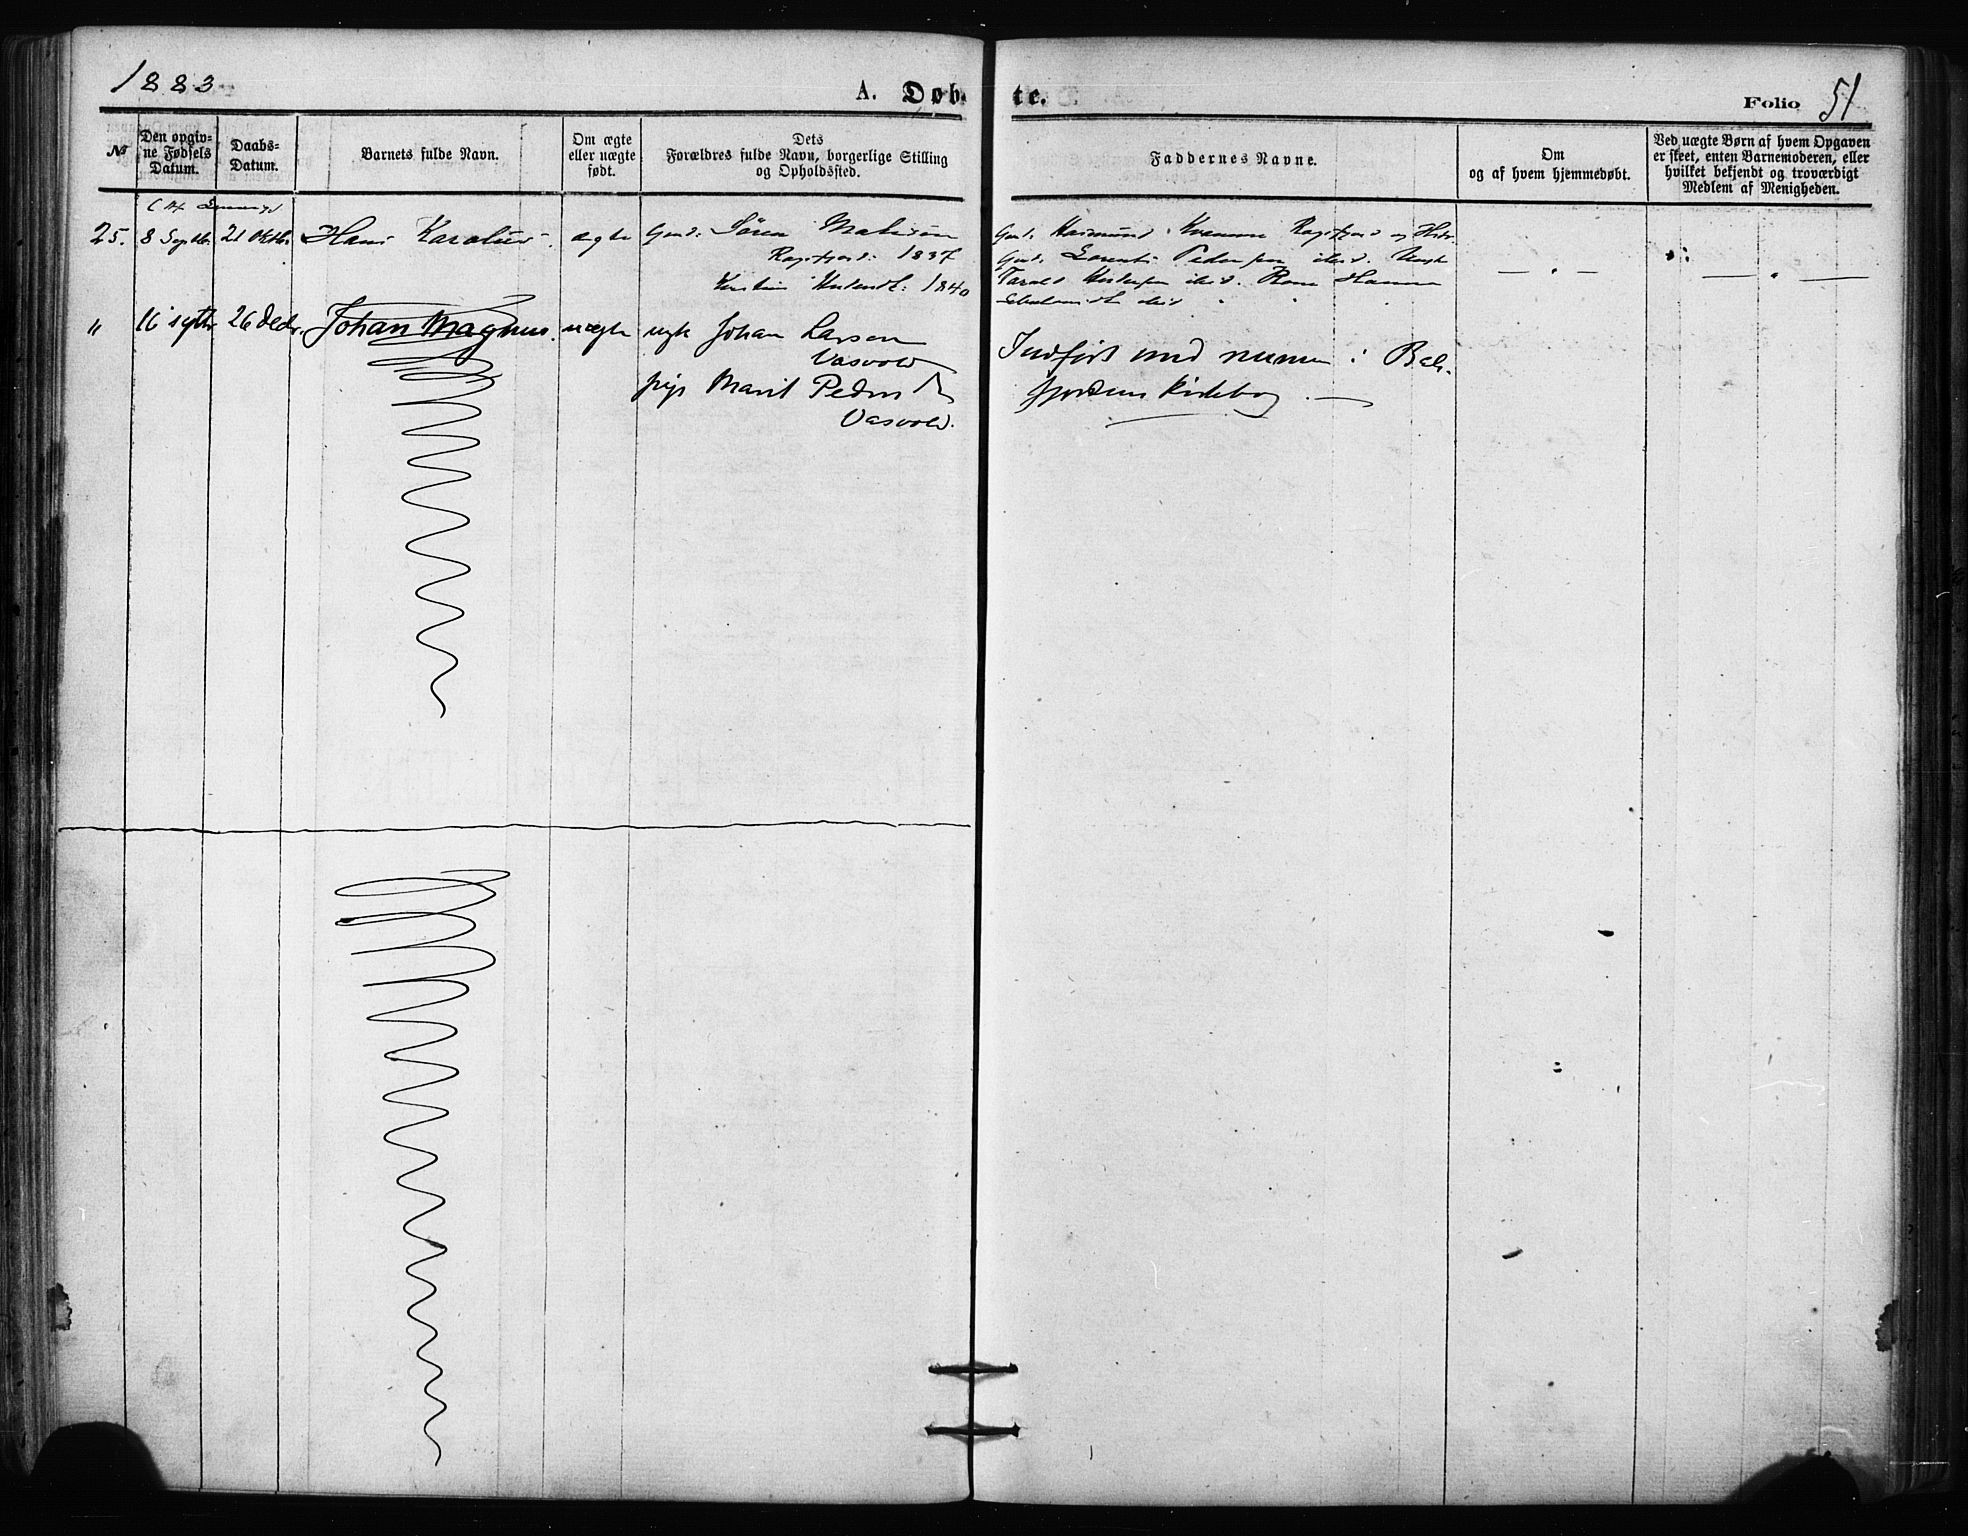 1883
A. Døbte.
Folio 51
No
Den opgiv-
ne Fødsels
Datum.
Daabs-
Datum.
Barnets fulde Navn.
Om ægte
eller uægte
født.
Dets
Forældres fulde Navn, borgerlige Stilling
og Opholdssted.
Faddernes Navne.
Om
og af hvem hjemmedøbt.
Ved uægte Børn af hvem Opgaven
er skeet, enten Barnemoderen, eller
hvilket bekjendt og troværdigt
Medlem af Menigheden.
25. 8 Septbr. 21 Oktbr. Hans Karolius ægte Gmd. Søren
1837
1840
Gmd. Rasmund Kvamme
Gmd. Lorents Pedersen ibid.
ibid. Hanna
ibid
" 16 septbr 26 Decbr. Johan Magnus. uægte ungk Johan Larsen
Vasvold
pige Marit Pedersd
Vasvold.
Indført med numer i Bals-
fjordens Kirkebog.